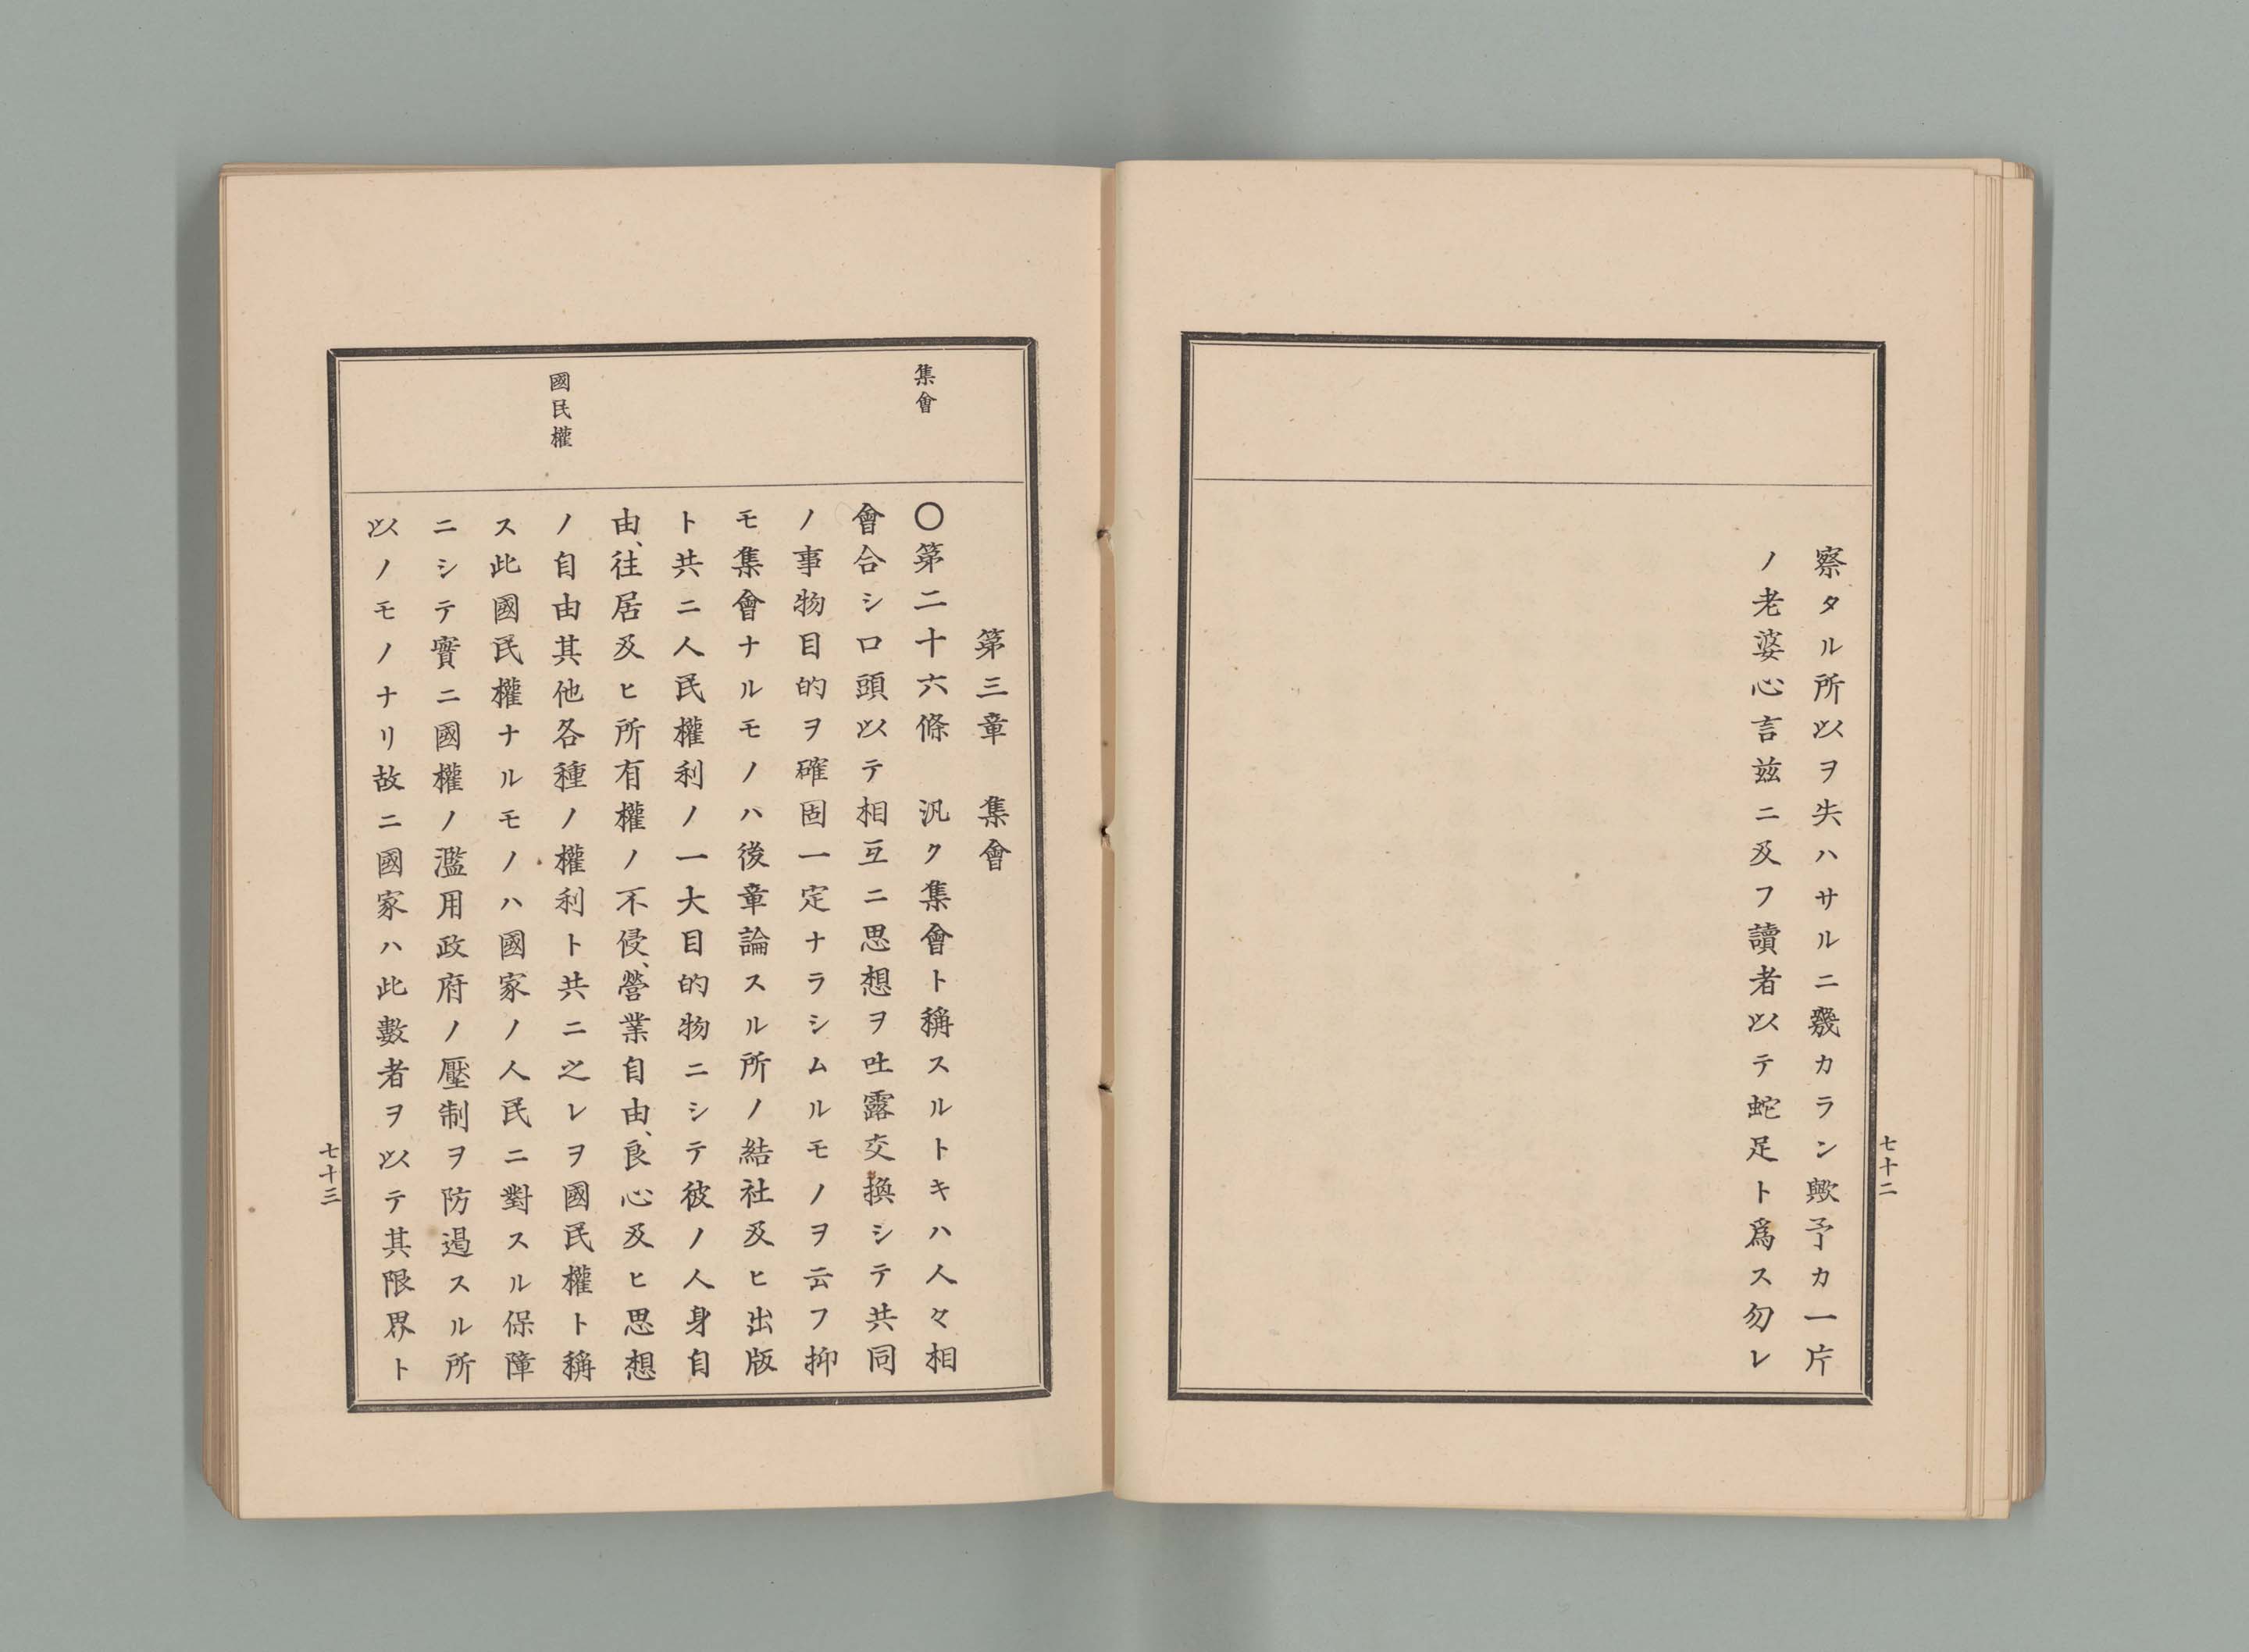 察タル所以ヲ失ハサルニ幾カラン歟予カ一片
ノ老婆心言茲ニ及フ讀者以テ蛇足ト爲ス勿レ
七十二
集會
國民權
第三章　集會
〇第二十六條　汎ク集會ト稱スルトキハ人々相
會合シ口頭以テ相互ニ思想ヲ吐露交換シテ共同
ノ事物目的ヲ確固一定ナラシムルモノヲ云フ抑
モ集會ナルモノハ後章論スル所ノ結社及ヒ出版
ト共ニ人民權利ノ一大目的物ニシテ彼ノ人身自
由、往居及ヒ所有權ノ不侵、營業自由、良心及ヒ思想
ノ自由其他各種ノ權利ト共ニ之レヲ國民權ト稱
ス此國民權ナルモノハ國家ノ人民ニ對スル保障
ニシテ實ニ國權ノ濫用政府ノ壓制ヲ防遏スル所
以ノモノナリ故ニ國家ハ此數者ヲ以テ其限界ト
七十三